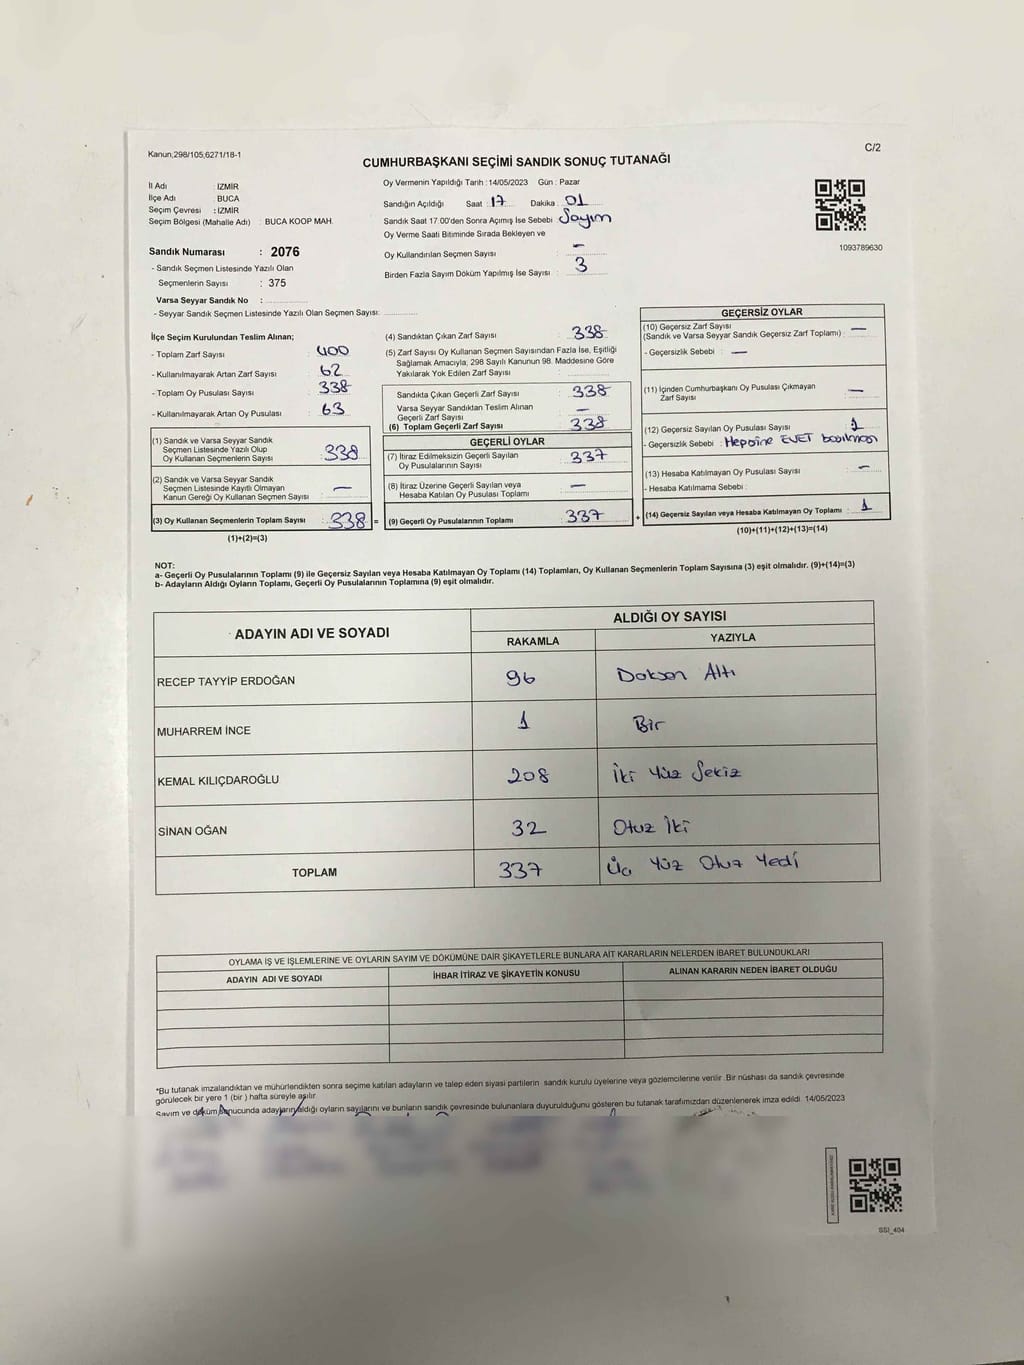 Kanun,298/105,6271/18-1
C/2
CUMHURBAŞKANI SEÇİMİ SANDIK SONUÇ TUTANAĞI
İl Adı : İZMİR
İlçe Adı : BUCA
Seçim Çevresi : İZMİR
Seçim Bölgesi (Mahalle Adı) : BUCA KOOP MAH.
Oy Vermenin Yapıldığı Tarih : 14/05/2023 Gün : Pazar
Sandığın Açıldığı Saat : 17 Dakika : 01
Sandık Saat 17:00'den Sonra Açımış İse Sebebi : Sayım
Oy Verme Saati Bitiminde Sırada Bekleyen ve
Oy Kullandırılan Seçmen Sayısı : —
Birden Fazla Sayım Döküm Yapılmış İse Sayısı : 3
1093789630
Sandık Numarası : 2076
- Sandık Seçmen Listesinde Yazılı Olan
Seçmenlerin Sayısı : 375
Varsa Seyyar Sandık No :
- Seyyar Sandık Seçmen Listesinde Yazılı Olan Seçmen Sayısı:
İlçe Seçim Kurulundan Teslim Alınan;
- Toplam Zarf Sayısı : 400
- Kullanılmayarak Artan Zarf Sayısı : 62
- Toplam Oy Pusulası Sayısı : 338
- Kullanılmayarak Artan Oy Pusulası : 63
(1) Sandık ve Varsa Seyyar Sandık
Seçmen Listesinde Yazılı Olup
Oy Kullanan Seçmenlerin Sayısı : 338
(2) Sandık ve Varsa Seyyar Sandık
Seçmen Listesinde Kayıtlı Olmayan
Kanun Gereği Oy Kullanan Seçmen Sayısı : —
(3) Oy Kullanan Seçmenlerin Toplam Sayısı : 338 =
(1)+(2)=(3)
(4) Sandıktan Çıkan Zarf Sayısı : 338
(5) Zarf Sayısı Oy Kullanan Seçmen Sayısından Fazla İse, Eşitliği
Sağlamak Amacıyla; 298 Sayılı Kanunun 98. Maddesine Göre
Yakılarak Yok Edilen Zarf Sayısı :
Sandıkta Çıkan Geçerli Zarf Sayısı : 338
Varsa Seyyar Sandıktan Teslim Alınan
Geçerli Zarf Sayısı : —
(6) Toplam Geçerli Zarf Sayısı : 338
GEÇERLİ OYLAR
(7) İtiraz Edilmeksizin Geçerli Sayılan
Oy Pusulalarının Sayısı : 337
(8) İtiraz Üzerine Geçerli Sayılan veya
Hesaba Katılan Oy Pusulası Toplamı : —
(9) Geçerli Oy Pusulalarının Toplamı : 337 +
GEÇERSİZ OYLAR
(10) Geçersiz Zarf Sayısı
(Sandık ve Varsa Seyyar Sandık Geçersiz Zarf Toplamı) : —
- Geçersizlik Sebebi : —
(11) İçinden Cumhurbaşkanı Oy Pusulası Çıkmayan
Zarf Sayısı : —
(12) Geçersiz Sayılan Oy Pusulası Sayısı : 1
- Geçersizlik Sebebi : Hepsine EVET basılması
(13) Hesaba Katılmayan Oy Pusulası Sayısı : —
- Hesaba Katılmama Sebebi :
(14) Geçersiz Sayılan veya Hesaba Katılmayan Oy Toplamı : 1
(10)+(11)+(12)+(13)=(14)
NOT:
a- Geçerli Oy Pusulalarının Toplamı (9) ile Geçersiz Sayılan veya Hesaba Katılmayan Oy Toplamı (14) Toplamları, Oy Kullanan Seçmenlerin Toplam Sayısına (3) eşit olmalıdır. (9)+(14)=(3)
b- Adayların Aldığı Oyların Toplamı, Geçerli Oy Pusulalarının Toplamına (9) eşit olmalıdır.
ADAYIN ADI VE SOYADI
ALDIĞI OY SAYISI
RAKAMLA YAZIYLA
RECEP TAYYİP ERDOĞAN 96 Doksan Altı
MUHARREM İNCE 1 Bir
KEMAL KILIÇDAROĞLU 208 İki Yüz Sekiz
SİNAN OĞAN 32 Otuz İki
TOPLAM 337 Üç Yüz Otuz Yedi
OYLAMA İŞ VE İŞLEMLERİNE VE OYLARIN SAYIM VE DÖKÜMÜNE DAİR ŞİKAYETLERLE BUNLARA AİT KARARLARIN NELERDEN İBARET BULUNDUKLARI
ADAYIN ADI VE SOYADI İHBAR İTİRAZ VE ŞİKAYETİN KONUSU ALINAN KARARIN NEDEN İBARET OLDUĞU
*Bu tutanak imzalandıktan ve mühürlendikten sonra seçime katılan adayların ve talep eden siyasi partilerin sandık kurulu üyelerine veya gözlemcilerine verilir .Bir nüshası da sandık çevresinde
görülecek bir yere 1 (bir ) hafta süreyle aşılır.
Sayım ve döküm sonucunda adayların aldığı oyların sayılarını ve bunların sandık çevresinde bulunanlara duyurulduğunu gösteren bu tutanak tarafımızdan düzenlenerek imza edildi. 14/05/2023
SSI_404